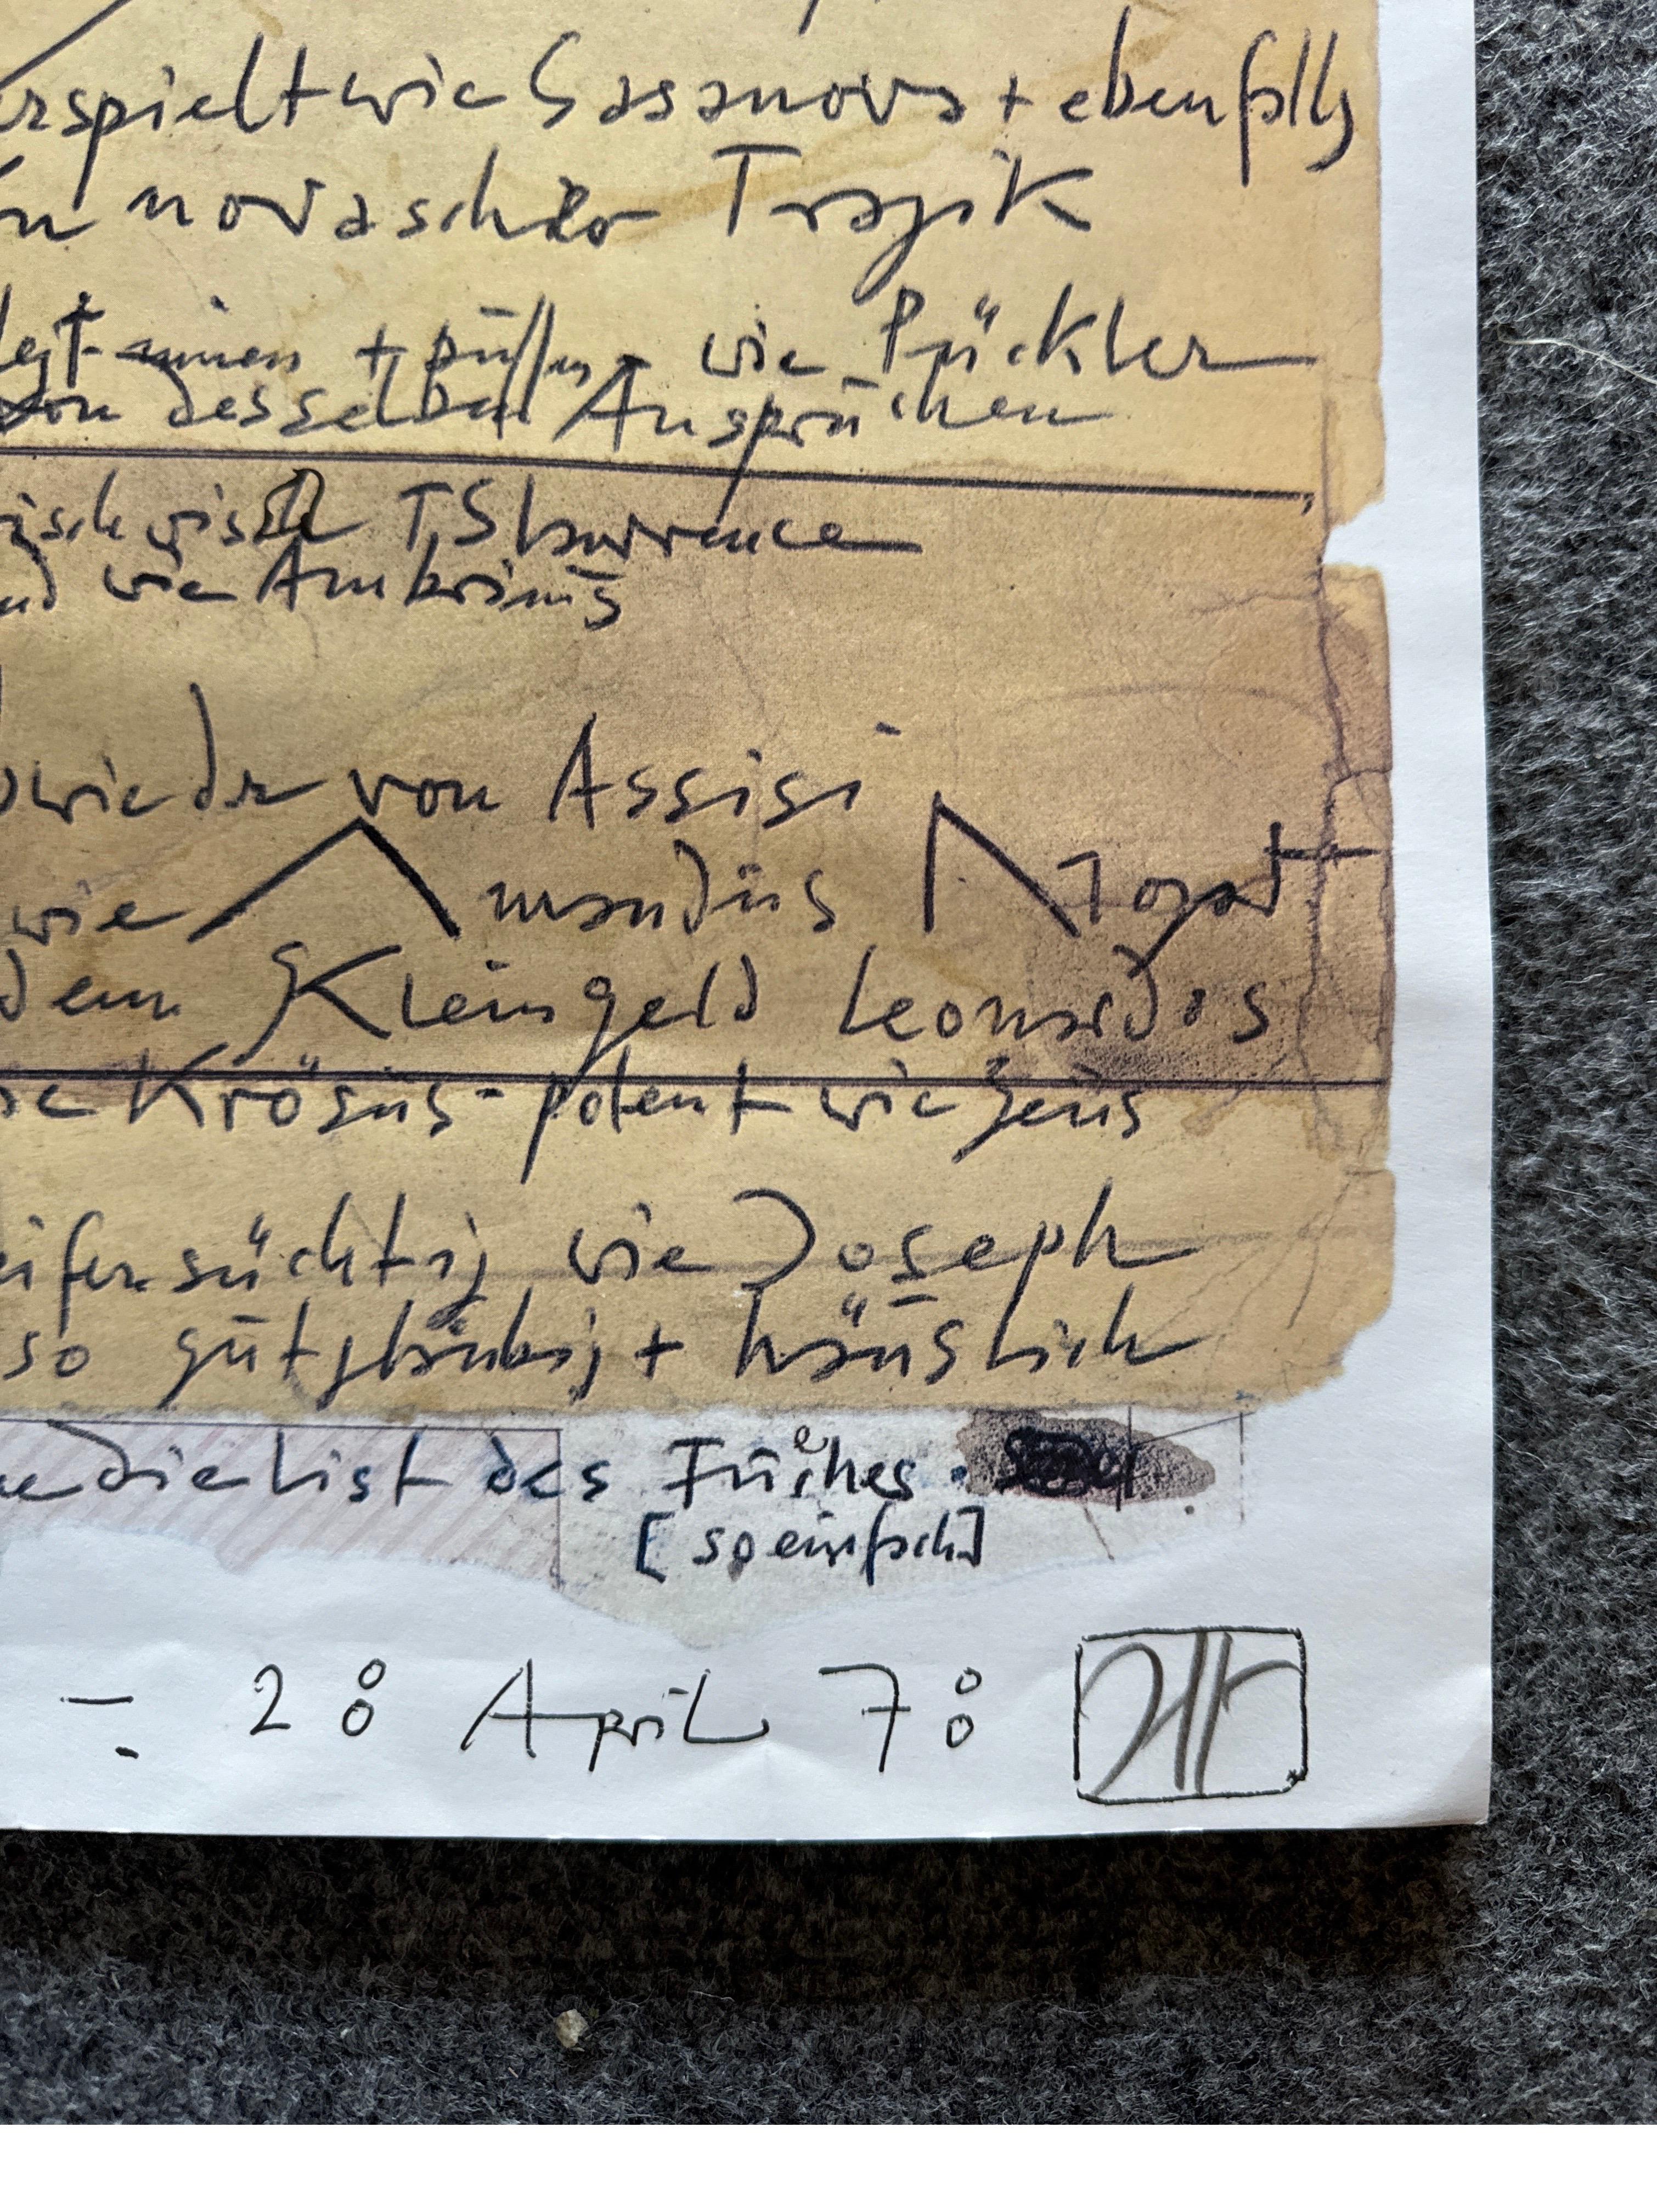 erspielt wie Casanova + ebenfalls
novascher Tragik
wie Pückler
von desselben Ansprüchen
TS Lawrence
und wie Ambrinus
wie der von Assisi
wie Amandus Mozart
dem Kleingeld Leonardos
Krösus - potent wie Zeus
eifersüchtig wie Joseph
so gutgläubig + häuslich
die List des Fuches.
[so einfach]
28 April 78